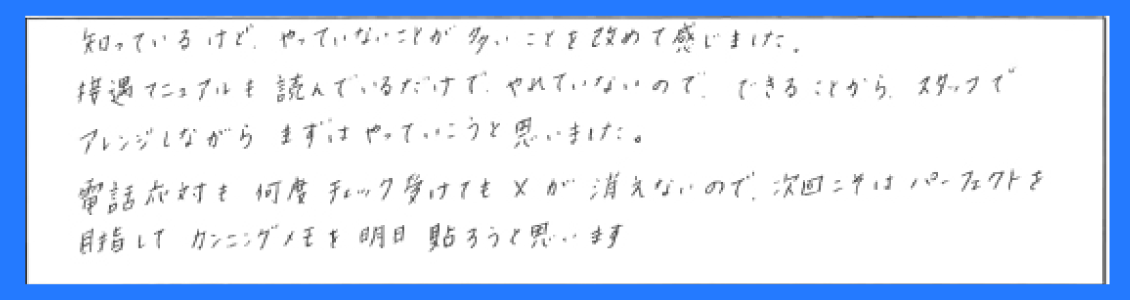 知っているけど、やっていないことが多いことを改めて感じました。
接遇マニュアルも読んでいるだけで、やれていないので、できることから、スタッフで
アレンジしながらまずはやっていこうと思いました。
電話応対も何度チェック受けても×が消えないので、次回こそはパーフェクトを
目指してカンニングメモを明日貼ろうと思います